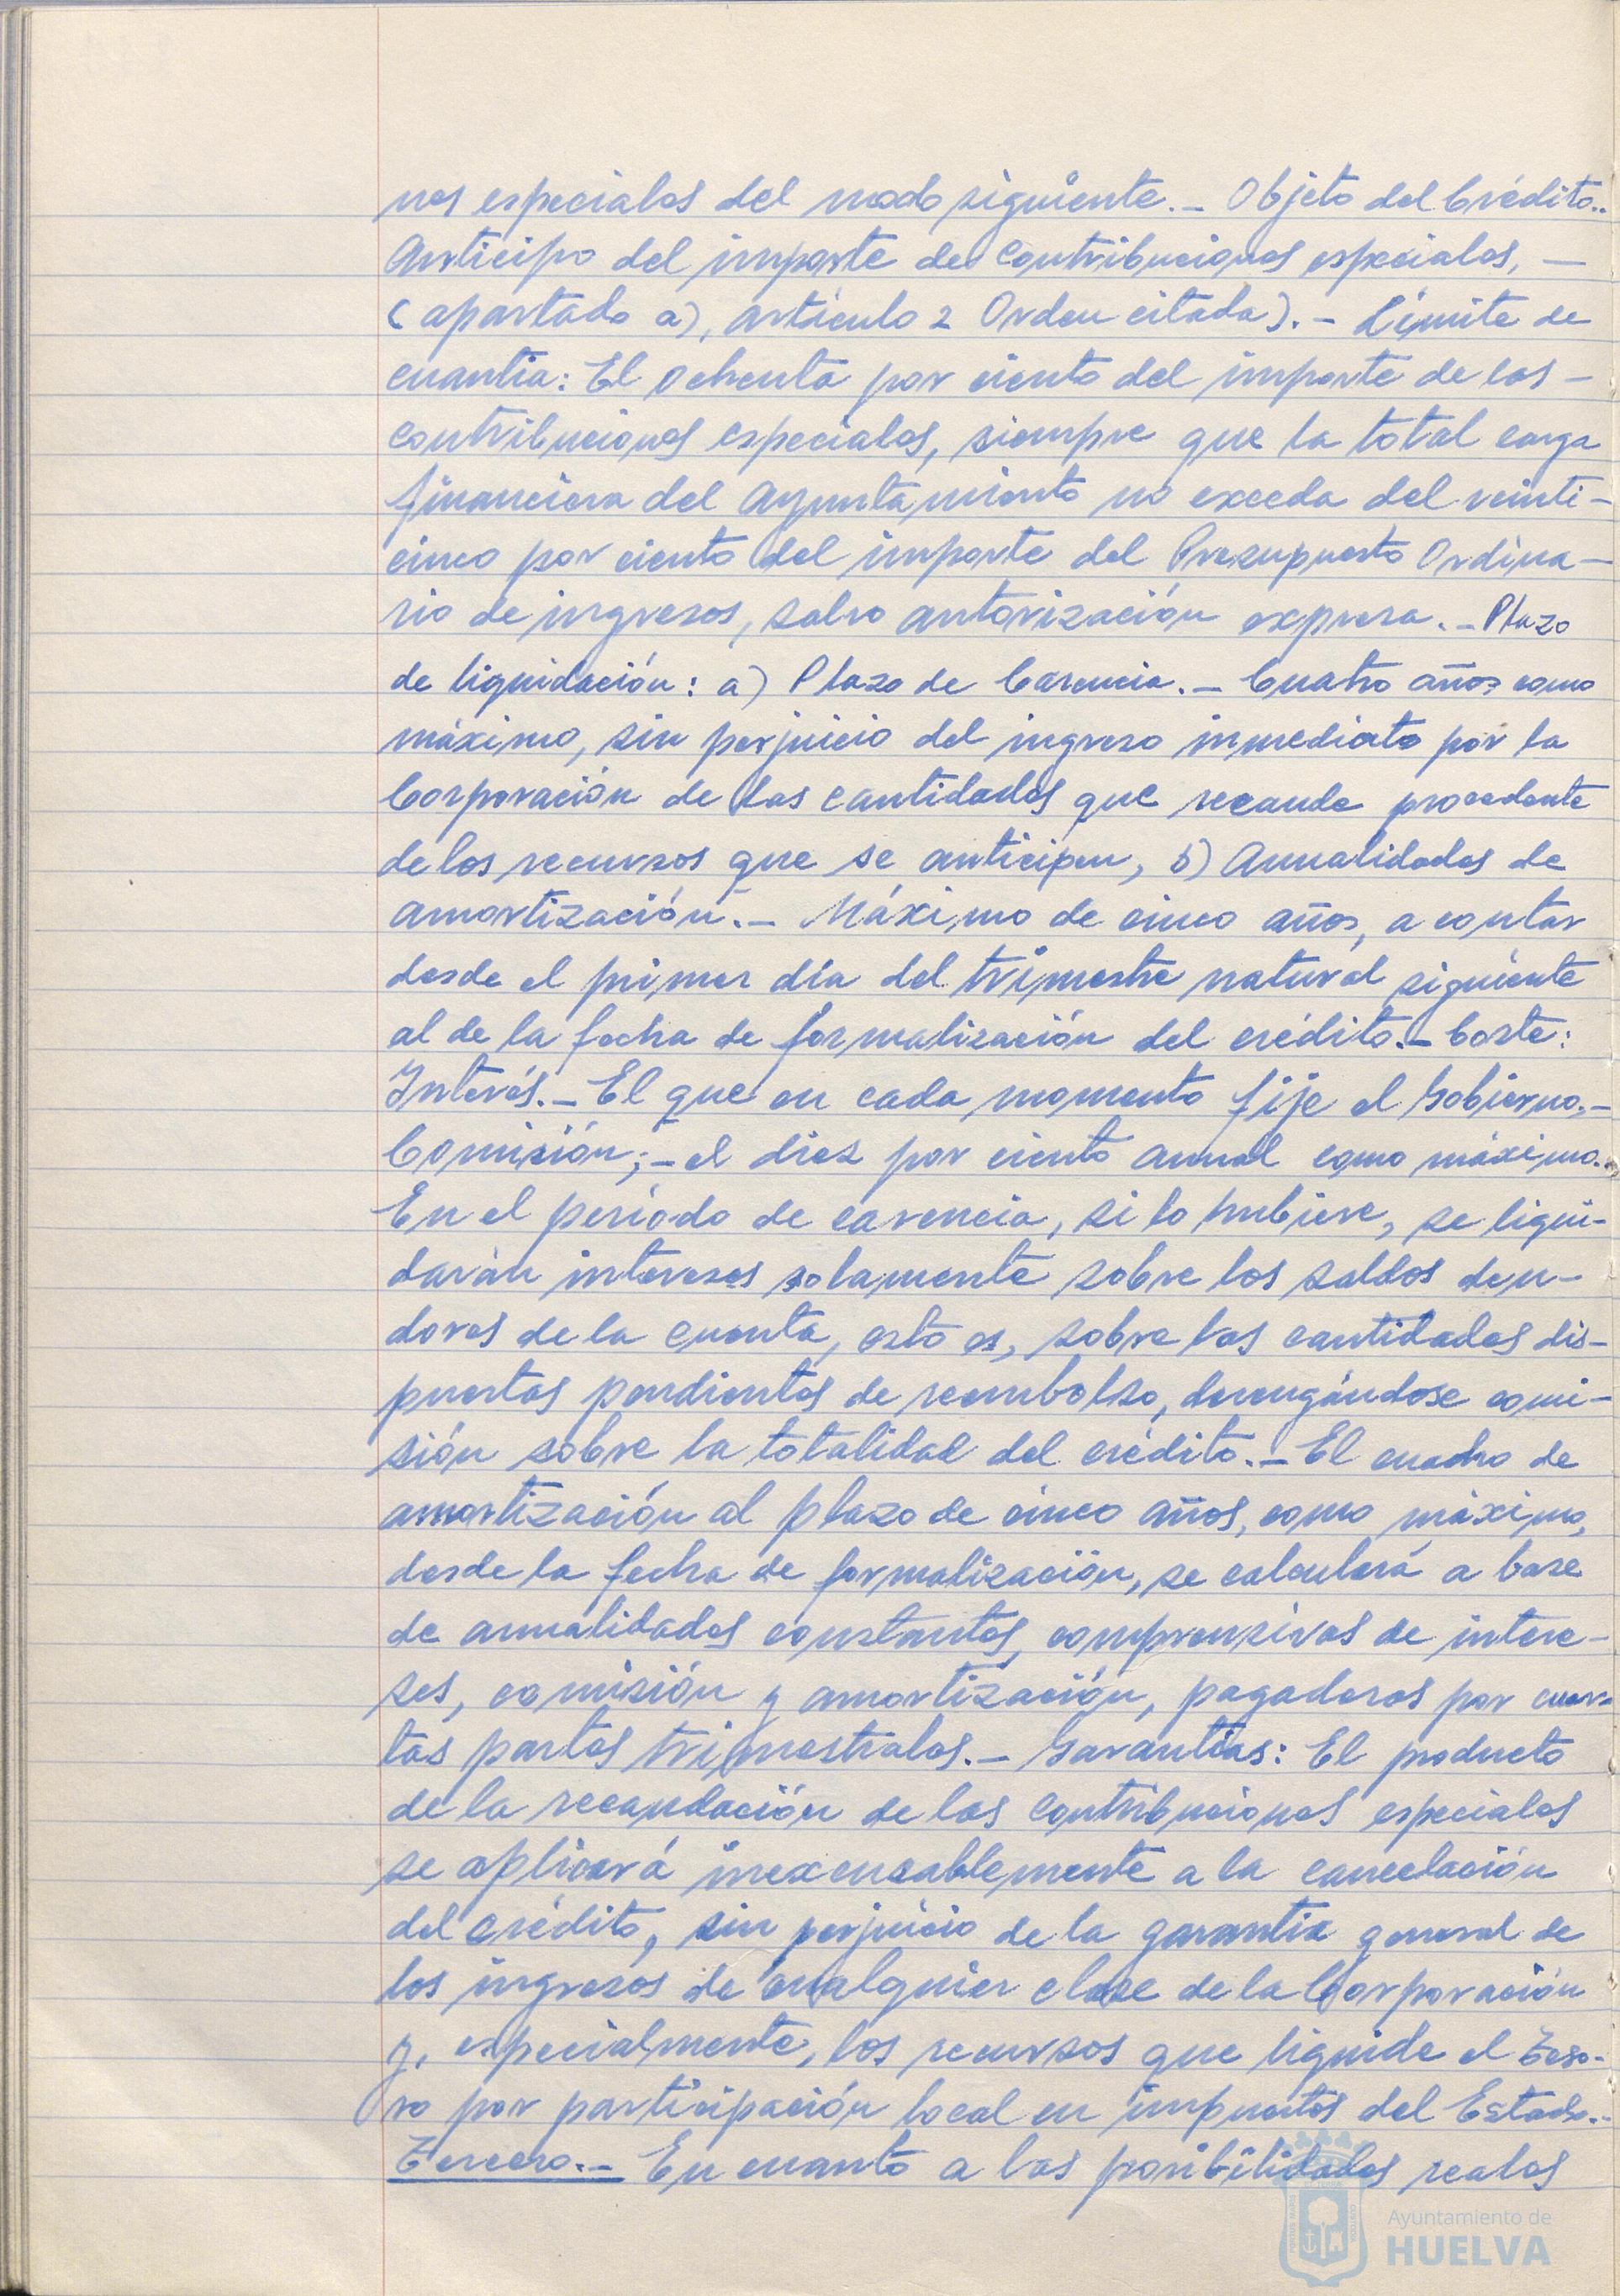 nes especiales del modo siguiente.- Objeto del Crédito.-
Anticipo del importe de contribuciones especiales, -
(apartado a), artículo 2 Orden citada).- Límite de
cuantia: El ochenta por ciento del importe de las -
contribuciones especiales, siempre que la total carga
financiera del Ayuntamiento no exceda del veinti-
cinco por ciento del importe del Presupuesto Ordina-
rio de ingresos, salvo autorización expresa.- Plazo
de liquidación: a) Plazo de Carencia.- Cuatro años como
máximo, sin perjuicio del ingreso inmediato por la
Corporación de las cantidades que recaude procedente
de los recursos que se anticipen, b) Anualidades de
amortización.- Máximo de cinco años, a contar
desde el primer día del trimestre natural siguiente
al de la fecha de formalización del crédito.- Coste:
Interés.- El que en cada momento fije el Gobierno.-
Comisión;- el diez por ciento anual como máximo.-
En el período de carencia, si lo hubiere, se liqui-
darán intereses solamente sobre los saldos deu-
dores de la cuenta, esto es, sobre las cantidades dis-
puestas pendientes de reembolso, devengándose comi-
sión sobre la totalidad del crédito.- El cuadro de
amortización al plazo de cinco años, como máximo,
desde la fecha de formalización, se calculará a base
de anualidades constantes, comprensivas de intere-
ses, comisión y amortización, pagaderos por cuar-
tas partes trimestrales.- Garantías: El producto
de la recaudación de las contribuciones especiales
se aplicará inexcusablemente a la cancelación
del crédito, sin perjuicio de la garantia general de
los ingresos de cualquier clase de la Corporación
y, especialmente, los recursos que liquide el Teso-
ro por participación local en impuestos del Estado.-
Tercero.- En cuanto a las posibilidades reales
Ayuntamiento de
HUELVA